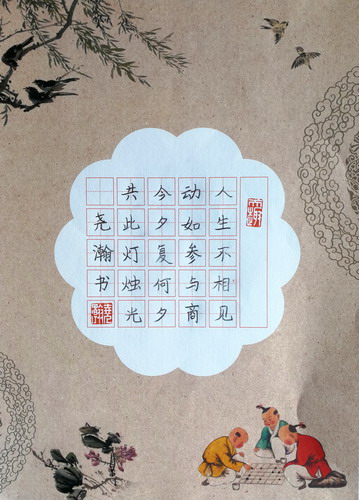 人生不相见
动如参与商
今夕复何夕
共此灯烛光
尧瀚书